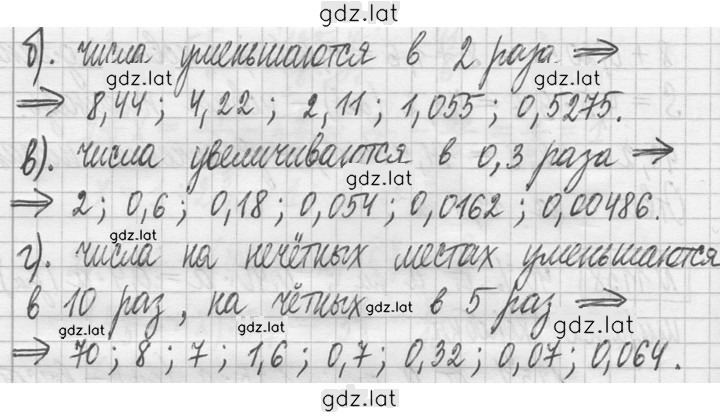 gdz.lat
б). числа уменьшаются в 2 раза ⇒
gdz.lat gdz.lat
⇒ 8,44; 4,22; 2,11; 1,055; 0,5275.
в). числа увеличиваются в 0,3 раза ⇒
gdz.lat
⇒ 2; 0,6; 0,18; 0,054; 0,0162; 0,00486.
gdz.lat
г). числа на нечётных местах уменьшаются
в 10 раз, на чётных в 5 раз ⇒
gdz.lat gdz.lat gdz.lat gdz.lat
⇒ 70; 8; 7; 1,6; 0,7; 0,32; 0,07; 0,064.
gdz.lat